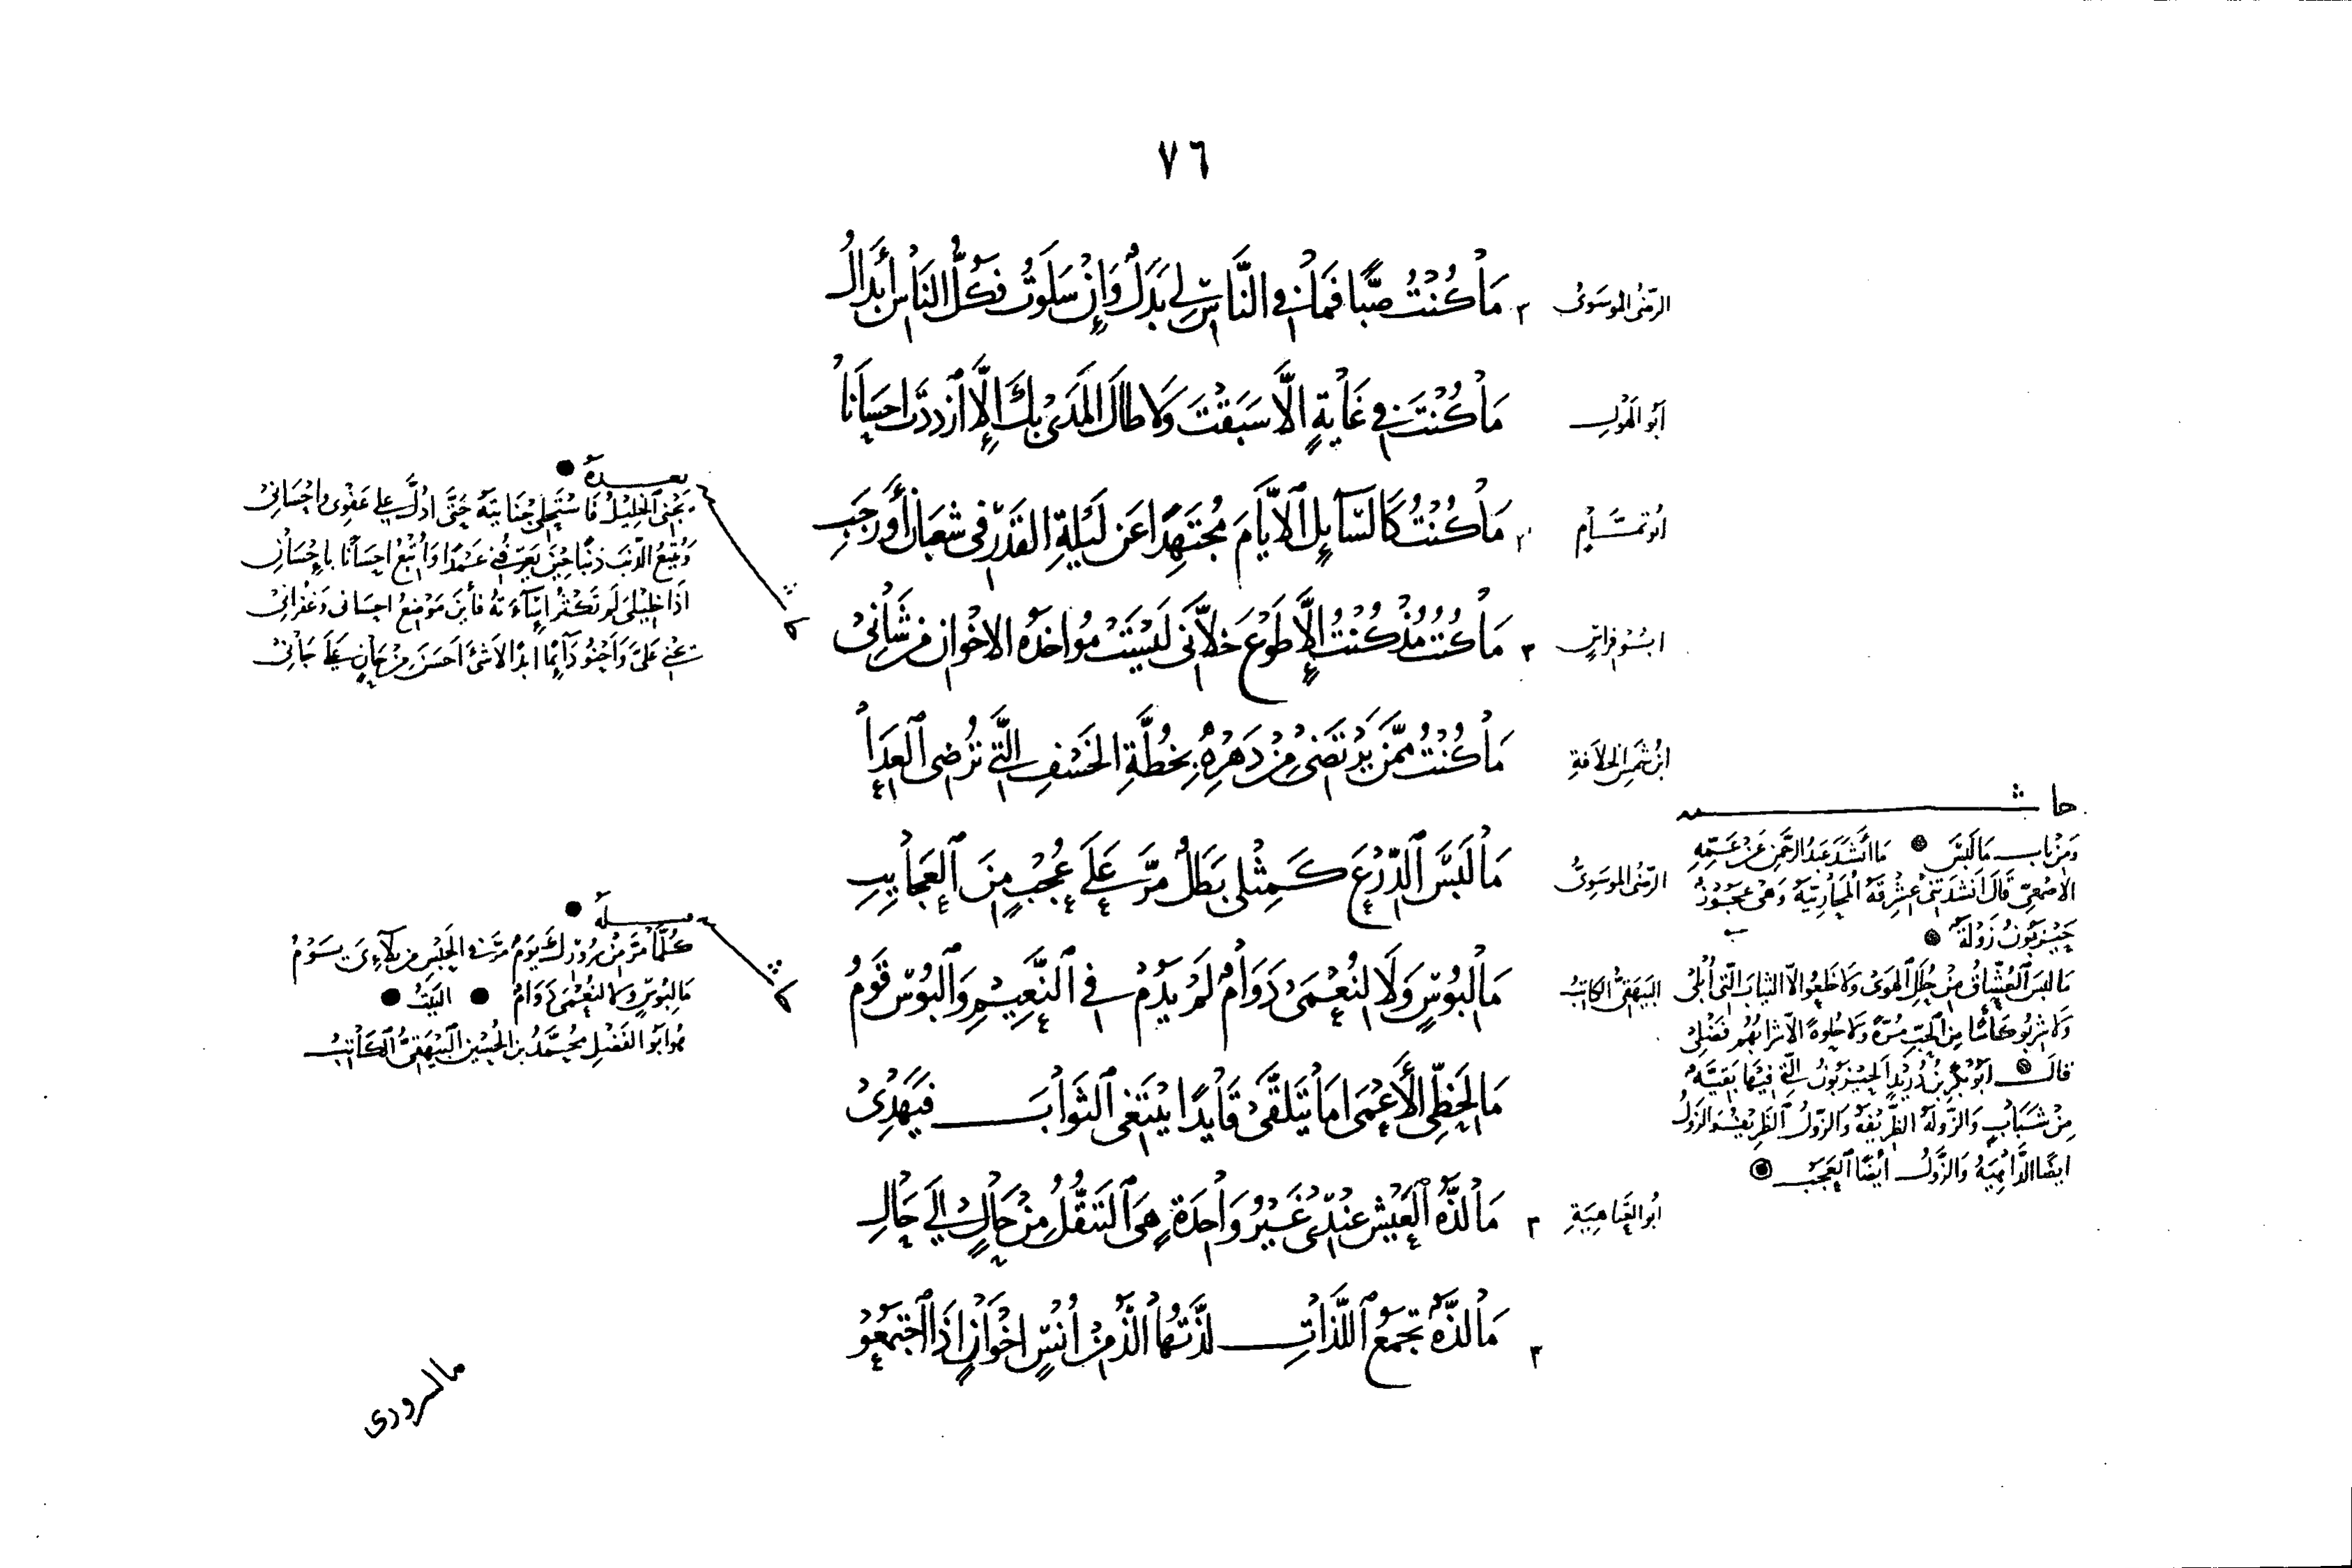 ٧٦
الرضى الموسوى
مَا كُنْتُ صَبًّا فَمَا فِى النَّاسِ لِى بَدَلٌ وَإِنْ سَلَوْتُ فَكُلُّ النَّاسِ أَبْدَالُ
أبو الهول
مَا كُنْتَ فِى غَايَةٍ إِلَّا سَبَقْتَ وَلَا طَالَ الْمَدَى بِكَ إِلَّا ازْدَدْتَ احسَانَا
أبو تمام
مَا كُنْتُ كَالسَّآيِلِ الْأَيَّامَ مُجْتَهِدًا عَن لَيْلَةِ الْقَدْرِ فِى شَعْبَانَ أَوْ رَجَبِ
ابو فراس
مَا كُنْتُ مُذْ كُنْتُ إِلَّا طَوْعَ خلاَّنى لَيْسَتْ مُواخَذَه الاخْوان من شَانِى
ابن شمس الخلافة
مَا كُنْتُ مِمَّنْ يَرْتَضِى مِنْ دَهْرِهِ بِخُطَّةِ الْخَسْفِ الَّتِى تُرْضِى الْعِدَا
الرضى الموسوى
مَا لَبِسَ الدِّرْعَ كَمِثْلِى بَطَلٌ مَرَّ عَلَى عُجْبٍ مِنَ الْعَجَايِبِ
البيهقى الكاتب
مَا لِبُوسٍ وَلَا لِنُعْمَى دَوَامٌ لَمْ يَدُمْ فى النَّعِيْمِ وَالْبُوسِ قَوْمُ
مَا لِحَظِّى الْأَعْمَى اما يَتَلَقَّى قَايِدًا يَبْتَغِى الثَوابَ فَيَهْدِىْ
أبو العتاهية
مَا لَذَّهُ الْعَيْشِ عِنْدِى غَيْرُ وَاحِدَةٍ هِىَ التَّنَقُّلُ مِنْ حَالٍ إِلَى حَالِ
مَا لَذَّهٌ تجمَعُ اللَّذَّاتِ لَذَّتُهَا أَلَذُّ مِنْ أُنْسِ اخْوَانٍ اذَا اجْتَمَعُو
بعده
يَجْنِى الخَلِيْلُ فَاسْتَحْلِى جِنَايَتَهُ حَتَّى ادُلَّ عَلى عَفْوِى واحْسَانِى
وَيُتْبِعُ الذَّنْبَ ذَنْبًا حِيْنَ يَعْرِفُنِى عَمْدًا وَأُتْبِعُ احسَانًا باحْسَانِ
اذَا خَلِيْلِىَ لَم تَكْثُرْ إِسَآءَتُهُ فَأَيْنَ مَوْضِعُ احسَانى وَغُفْرانِى
يجنى عَلَىَّ وَأَحْنُو دَآئِمًا ابدًا لا شئَ احسَن مِنْ حَانٍ عَلَى جَانِى
كُلَّمَا مَرَّ مِنْ سُرُورِكَ يَوْمٌ مَرَّ فى الحَبْسِ من بَلآءِىَ يَوْمُ
مَا لِبُوسٍ وَلا لِنُعْمَى دَوَامٌ البَيْتُ
هو أبو الفَضْلِ مُحَمَّدُ بنُ الحُسَيْنِ البَيْهَقِىُّ الْكَاتِبُ
حاشـــــية
وَمِنْ بَابِ مَا لَبِسَ مَا أَنْشَدَ عَبْدُ الرَّحْمٰنِ عَنْ عَمِّهِ
الاصْمَعِىّ قَالَ انْشَدَتْنِى عِشْرِقَهُ الْمُحَارِبِيَّهُ وَهِىَ عَجُوْزٌ
حَيْزَبُونٌ زَوْلَةٌ
مَا لَبِسَ الْعُشَّاقُ مِنْ حُلَلِ الْهَوَى وَلا خَلَعُوا الَّا الثيَابَ الَّتِى أُبْلِى
وَلا شَرِبُو كَأْسًا مِنَ الْحُبِّ مُرَّةً وَلا حُلوةً الَّا شَرَابُهُمُ فَضْلِى
قالَ أبو بَكْرِ بْنُ دُرَيْدٍ الحَيْزَبُونُ الَّتِى فِيْهَا بَقِيَّهٌ
مِنْ شَبَابٍ وَالزَّوْلَهُ الظَّرِيْفَهُ وَالزَّوْلُ الظَّرِيْفُ وَالزَوْلُ
ايضًا الدَّاهِيَهُ وَالزَّوْلُ أَيْضًا الْعَجَبُ